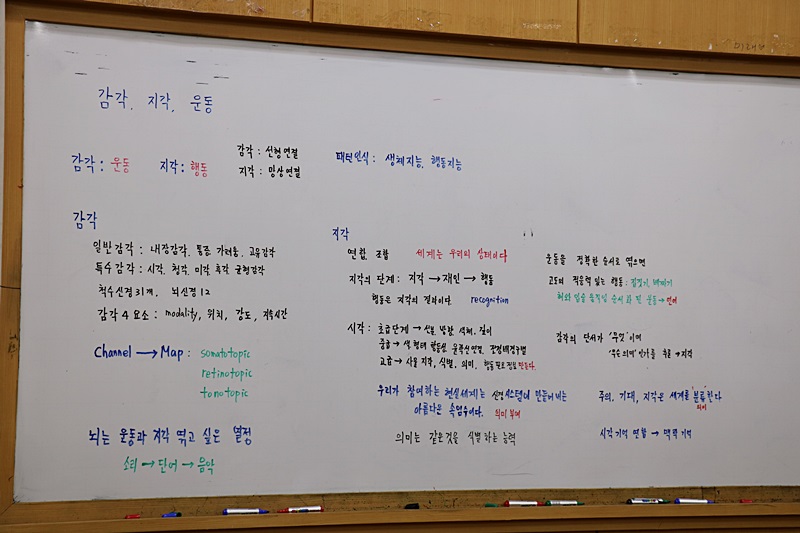 감각, 지각, 운동
감각 : 운동
지각 : 행동
감각 : 선형연결
지각 : 망상연결
패턴인식 : 생체지능, 행동지능
감각
일반감각 : 내장감각, 통증 가려움, 고유감각
특수감각 : 시각, 청각, 미각 후각 균형감각
척수신경 31개, 뇌신경 12
감각 4 요소 : modality, 위치, 강도, 지속시간
Channel → Map : somatotopic
retinotopic
tonotopic
뇌는 운동과 지각 엮고 싶은 열정
소리 → 단어 → 음악
지각
연합, 조합 세계는 우리의 상태이다
지각의 단계 : 지각 → 재인 → 행동
행동은 지각의 결과이다. recognition
시각 : 초급단계 → 선분, 방향, 색채, 깊이
중급 →
고급 → 사물 지각, 식별, 의미, 행동 만든다.
우리가 참여하는 현실세계는 신경시스템이 만들어 내는
아름다운 속임수이다. 의미 부여
의미는 같은것을 식별하는 능력
운동을 정확한 순서로 엮으면
고도의 적응력 있는 행동 : 집짓기,
혀와 입술 움직임 순서화 된 운동 → 언어
감각의 단서가 '무엇'이며
'무슨 의미'인가를 추론 → 지각
주의, 기대, 지각은 세계를 '분류'한다
의미
시각기억 연합 → 맥락 기억